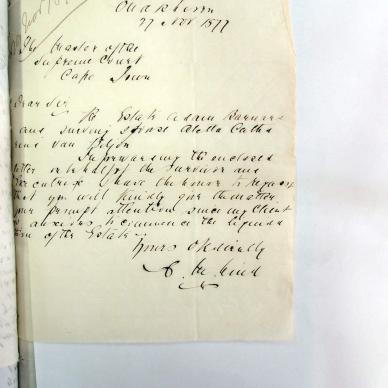 27 Nov 1877
The Master of the
Supreme Court
Cape Town
Dear Sir
Re Estate Adam Barnard
and surviving spouse Aletta Catha
rina van
In forwarding the enclosed
letter on behalf of the survivor and
I have the honor to request
that you will kindly give the matter
your prompt attention since my client
is anxious to commence the liquida
tion of the Estate
Yours Obediently